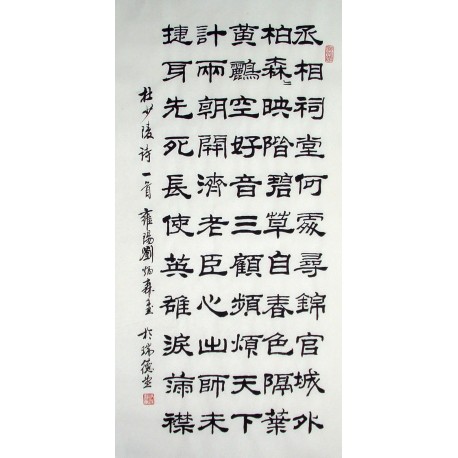 丞相祠堂何處尋錦官城外
柏森〃映階碧草自春色隔葉
黃鸝空好音三顧頻煩天下
計兩朝開濟老臣心出師未
捷身先死長使英雄淚滿襟
杜少陵诗一首雍陽劉炳森書於瑞德堂